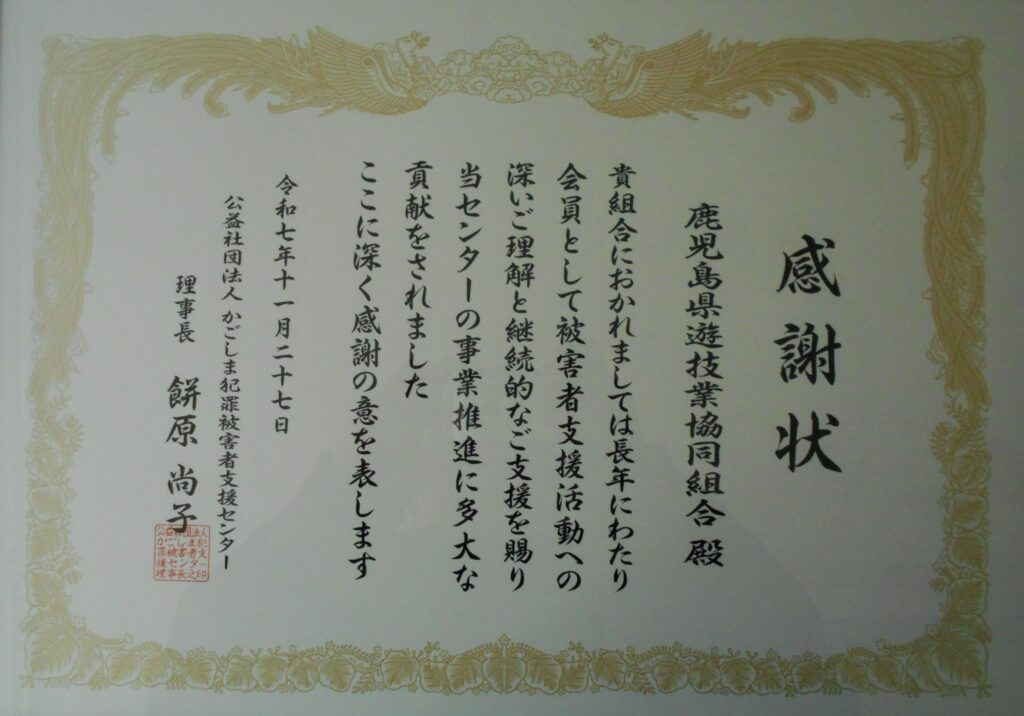 感謝状
鹿児島県遊技業協同組合 殿
貴組合におかれましては長年にわたり
会員として被害者支援活動への
深いご理解と継続的なご支援を賜り
当センターの事業推進に多大な
貢献をされました
ここに深く感謝の意を表します
令和七年十一月二十七日
公益社団法人 かごしま犯罪被害者支援センター
理事長 餅原 尚子